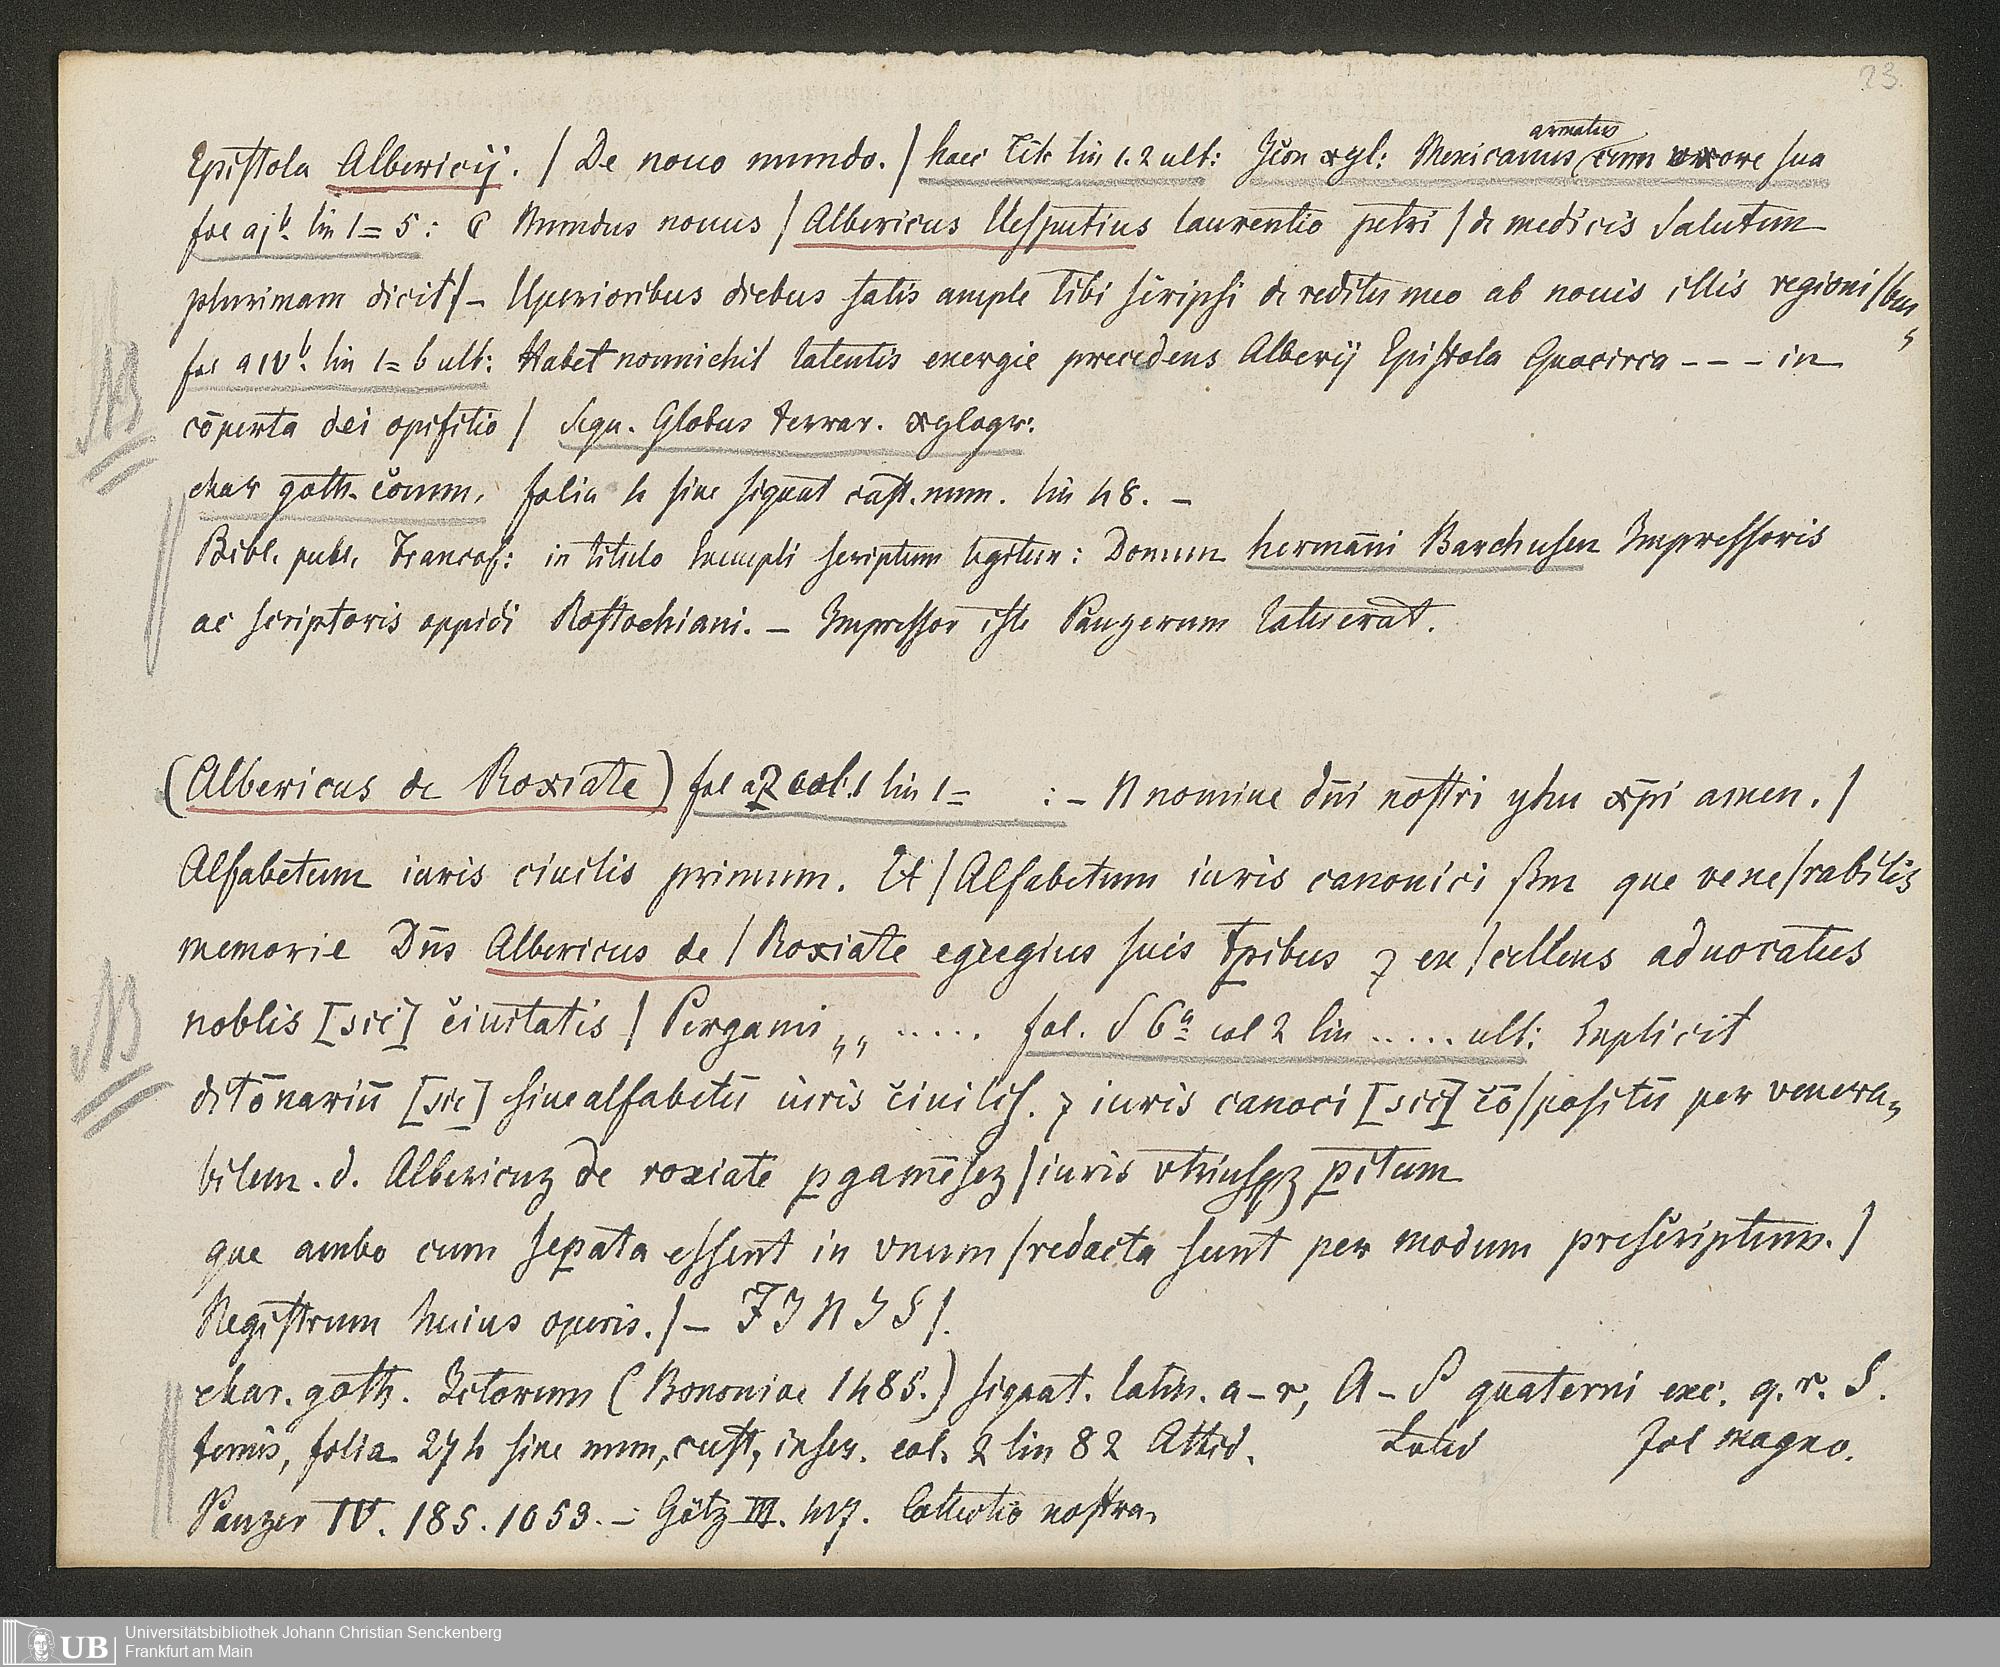 23.
Epistola Albericij. / De nouo mundo. / haec Tit. lin 1. 2 ult: Icon xyl: Mexicanus armatus cum uxore sua
fol aj b. lin 1= 5: C Mundus nouus / Albericus Uesputius laurentio petri / de medicis Salutem
plurimam dicit / – Uperioribus diebus satis ample tibi scripsi de reditu meo ab nouis illis regioni/bus,
fol a IV b. lin 1= 6 ult: Habet nonnichil latentis energie precedens Alberij Epistola Quocirca - - - in
cōperta dei opifitio / Sequ. Globus terrar. xylogr:
char goth. comm. folia 4 sine signat cust. num. lin 48. –
Bibl. publ. Francof: in titulo exempli scriptum legitur: Donum hermanni Barchusen Impressoris
ac scriptoris oppidi Rostochiani. – Impressor iste Panzerum latuerat.
(Albericus de Roxiate) fol a 2 col. 1 lin 1= : – N nomine dni nostri yhu xpi amen. /
Alfabetum iuris ciuilis primum. Et / Alfabetum iuris canonici que vene/rabilis
memorie Dns Albericus de / Roxiate egregius suis tpibus ⁊ ex/cellens aduocatus
noblis [sic] ciuitatis / Pergami „ ..... fol. S 6 a col 2 lin ..... ult: Explicit
ditōnariū [sic] siue alfabetū iuris ciuilis. ⁊ iuris canoci [sic] cō/positū per venera-
bilem. d. Albericuz de roxiate pgamēsez / iuris vtriusqz pitum
que ambo cum sepata essent in vnum / redacta sunt per modum prescriptum. /
Registrum huius operis. / – FINIS /.
char. goth. Ictorum (Bononiae 1485.) signat. latin. a – r, A – S quaterni exc. q. r. S.
ternis, folia 274 sine num, cust, inscr. col. 2 lin 82 Attid. Latid fol magno.
Panzer IV. 185. 1053. – Götz III. 417. Collectio nostra.
NB
NB
UB
Universitätsbibliothek Johann Christian Senckenberg
Frankfurt am Main